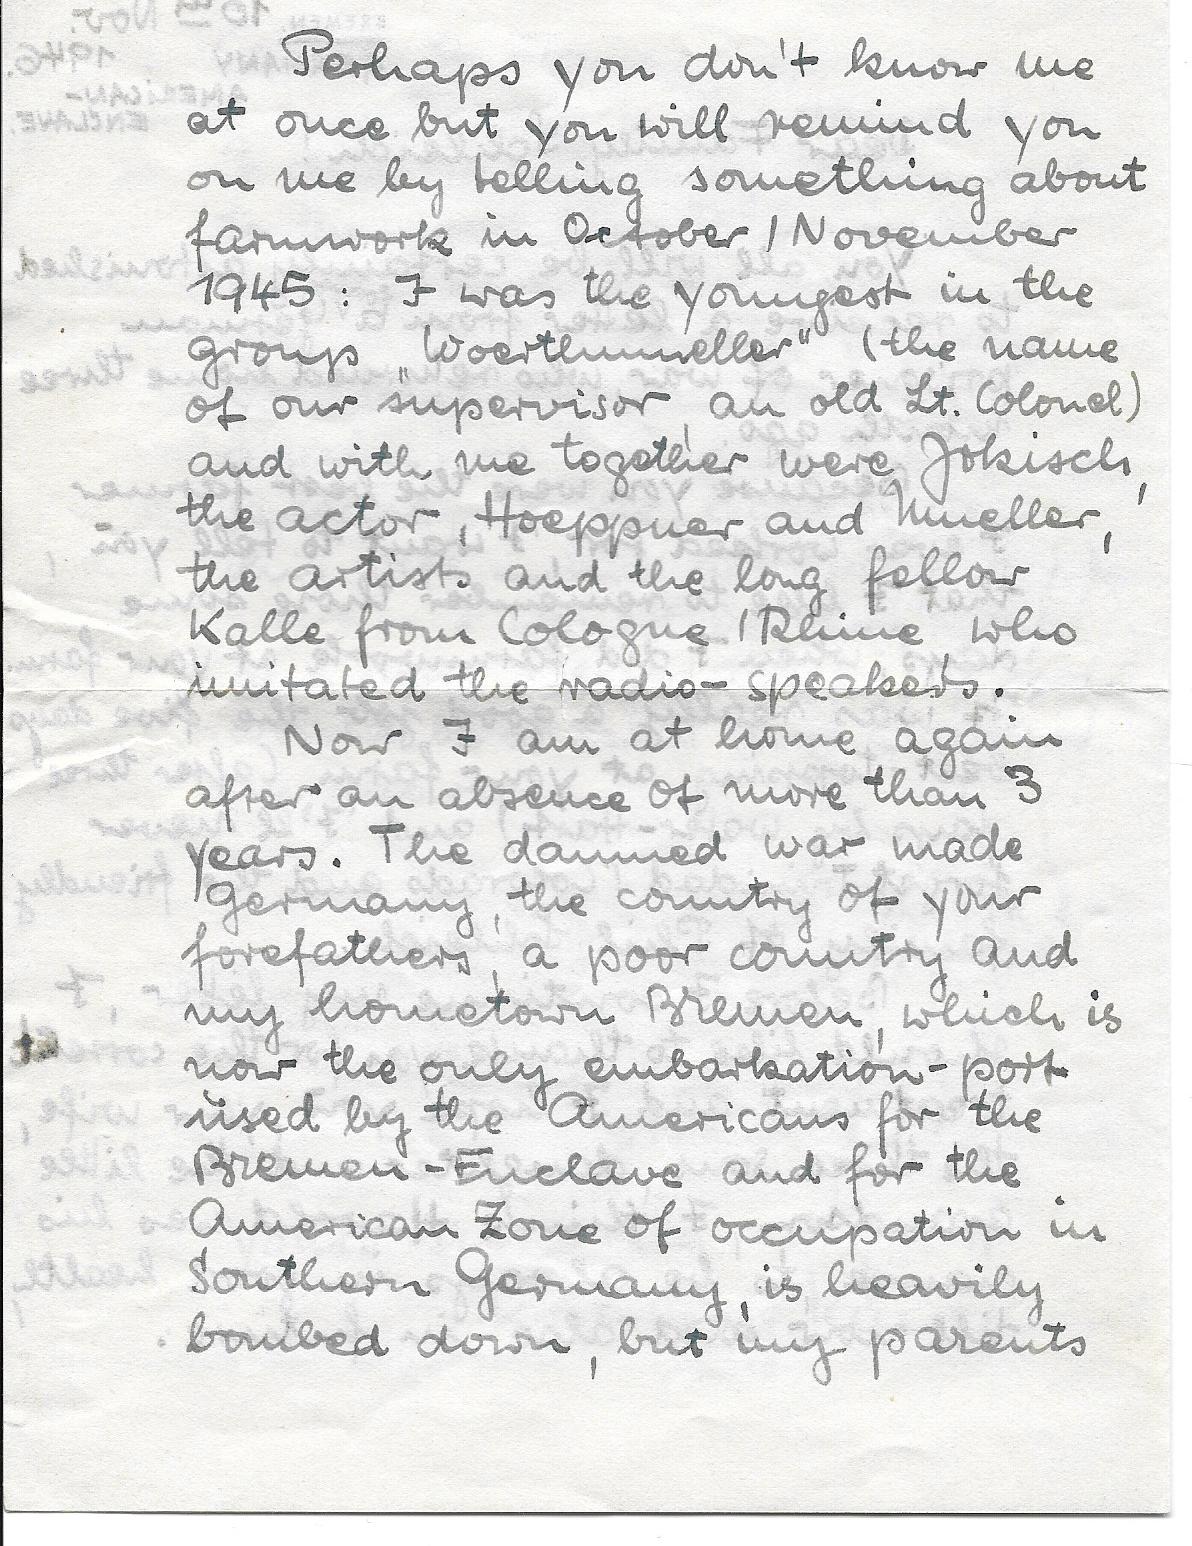 Perhaps you don't know me
at once but you will remind you
on me by telling something about
farmwork in October / November
1945: I was the youngest in the
group „Woerthmueller" (the name
of our supervisor, an old Lt. Colonel)
and with me together were Jokisch,
the actor, Hoeppner and Mueller,
the artists and the long fellow
Kalle from Cologne / Rhine, who
imitated the radio-speakers.
Now I am at home again
after an absence of more than 3
years. The damned war made
Germany, the country of your
forefathers, a poor country and
my hometown Bremen, which is
now the only embarkation-port
used by the Americans for the
Bremen-Enclave and for the
American Zone of occupation in
Southern Germany, is heavily
bombed down, but my parents